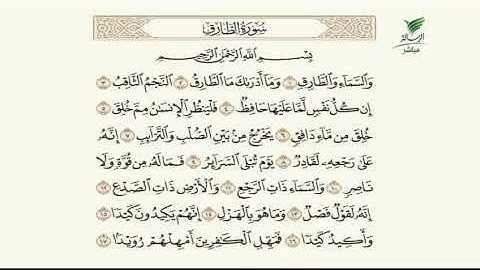 الرسالة
مباشر
سُورَةُ الطَّارِقِ
بِسْمِ اللَّهِ الرَّحْمَٰنِ الرَّحِيمِ
وَالسَّمَاءِ وَالطَّارِقِ ١ وَمَا أَدْرَىٰكَ مَا الطَّارِقُ ٢ النَّجْمُ الثَّاقِبُ ٣
إِن كُلُّ نَفْسٍ لَّمَّا عَلَيْهَا حَافِظٌ ٤ فَلْيَنظُرِ الْإِنسَٰنُ مِمَّ خُلِقَ ٥
خُلِقَ مِن مَّاءٍ دَافِقٍ ٦ يَخْرُجُ مِنۢ بَيْنِ الصُّلْبِ وَالتَّرَائِبِ ٧ إِنَّهُ
عَلَىٰ رَجْعِهِ لَقَادِرٌ ٨ يَوْمَ تُبْلَى السَّرَائِرُ ٩ فَمَا لَهُ مِن قُوَّةٍ وَلَا
نَاصِرٍ ١٠ وَالسَّمَاءِ ذَاتِ الرَّجْعِ ١١ وَالْأَرْضِ ذَاتِ الصَّدْعِ ١٢
إِنَّهُ لَقَوْلٌ فَصْلٌ ١٣ وَمَا هُوَ بِالْهَزْلِ ١٤ إِنَّهُمْ يَكِيدُونَ كَيْدًا ١٥
وَأَكِيدُ كَيْدًا ١٦ فَمَهِّلِ الْكَٰفِرِينَ أَمْهِلْهُمْ رُوَيْدًۢا ١٧